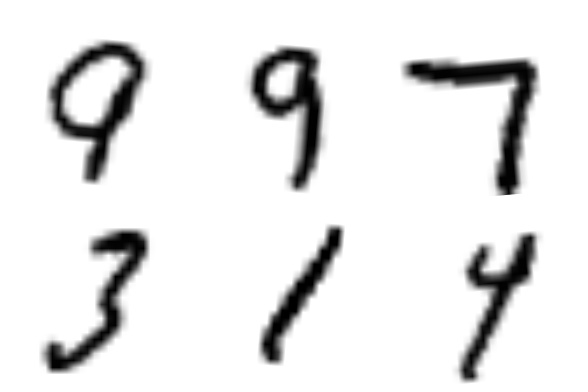 9 9 7
3 1 4